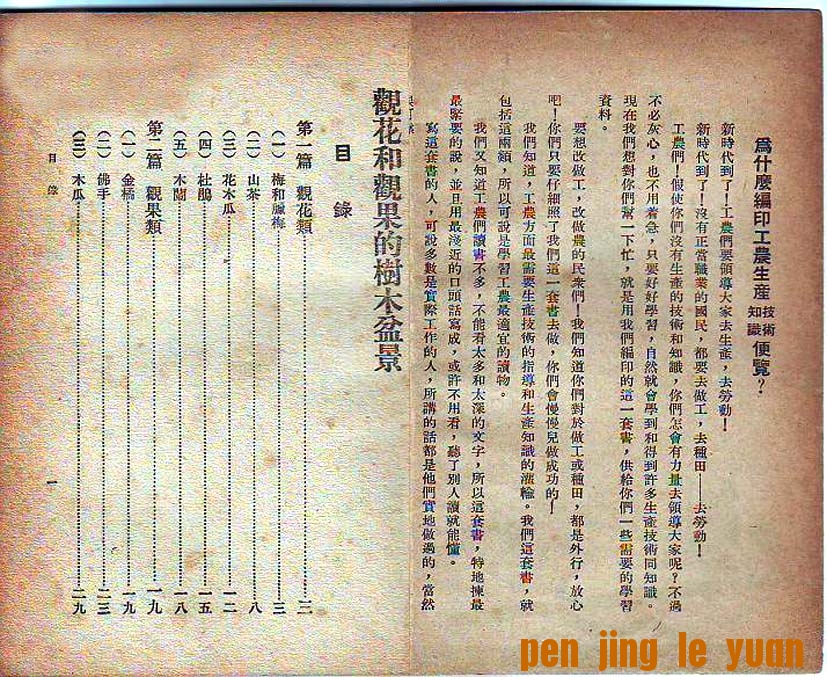 爲什麼編印工農生產技術知識便覽？
新時代到了！工農們要領導大家去生產，去勞動！
新時代到了！沒有正當職業的國民，都要去做工，去種田——去勞動！
工農們！假使你們沒有生產的技術和知識，你們怎會有力量去領導大家呢？不過
不必灰心，也不用着急，只要好好學習，自然就會學到和得到許多生產技術同知識。
現在我們想對你們幫一下忙，就是用我們編印的這一套書，供給你們一些需要的學習
資料。
要想改做工，改做農的民衆們！我們知道你們對於做工或種田，都是外行，放心
吧！你們只要仔細照了我們這一套書去做，你們會慢慢兒做成功的！
我們知道，工農方面最需要生產技術的指導和生產知識的灌輸。我們這套書，就
包括這兩類，所以可說是學習工農最適宜的讀物。
我們又知道工農們讀書不多，不能看太多和太深的文字，所以這套書，特地揀最
最緊要的說，並且用最淺近的口頭話寫成，或許不用看，聽了別人讀就能懂。
寫這套書的人，可說多數是實際工作的人，所講的話都是他們實地做過的，當然
觀花和觀果的樹木盆景
目錄
第一篇 觀花類……三
（一）梅和臘梅……三
（二）山茶……八
（三）花木瓜……一二
（四）杜鵑……一五
（五）木蘭……一八
第二篇 觀果類……一九
（一）金橘……一九
（二）佛手……二三
（三）木瓜……二九
目錄
一
pen jing le yuan